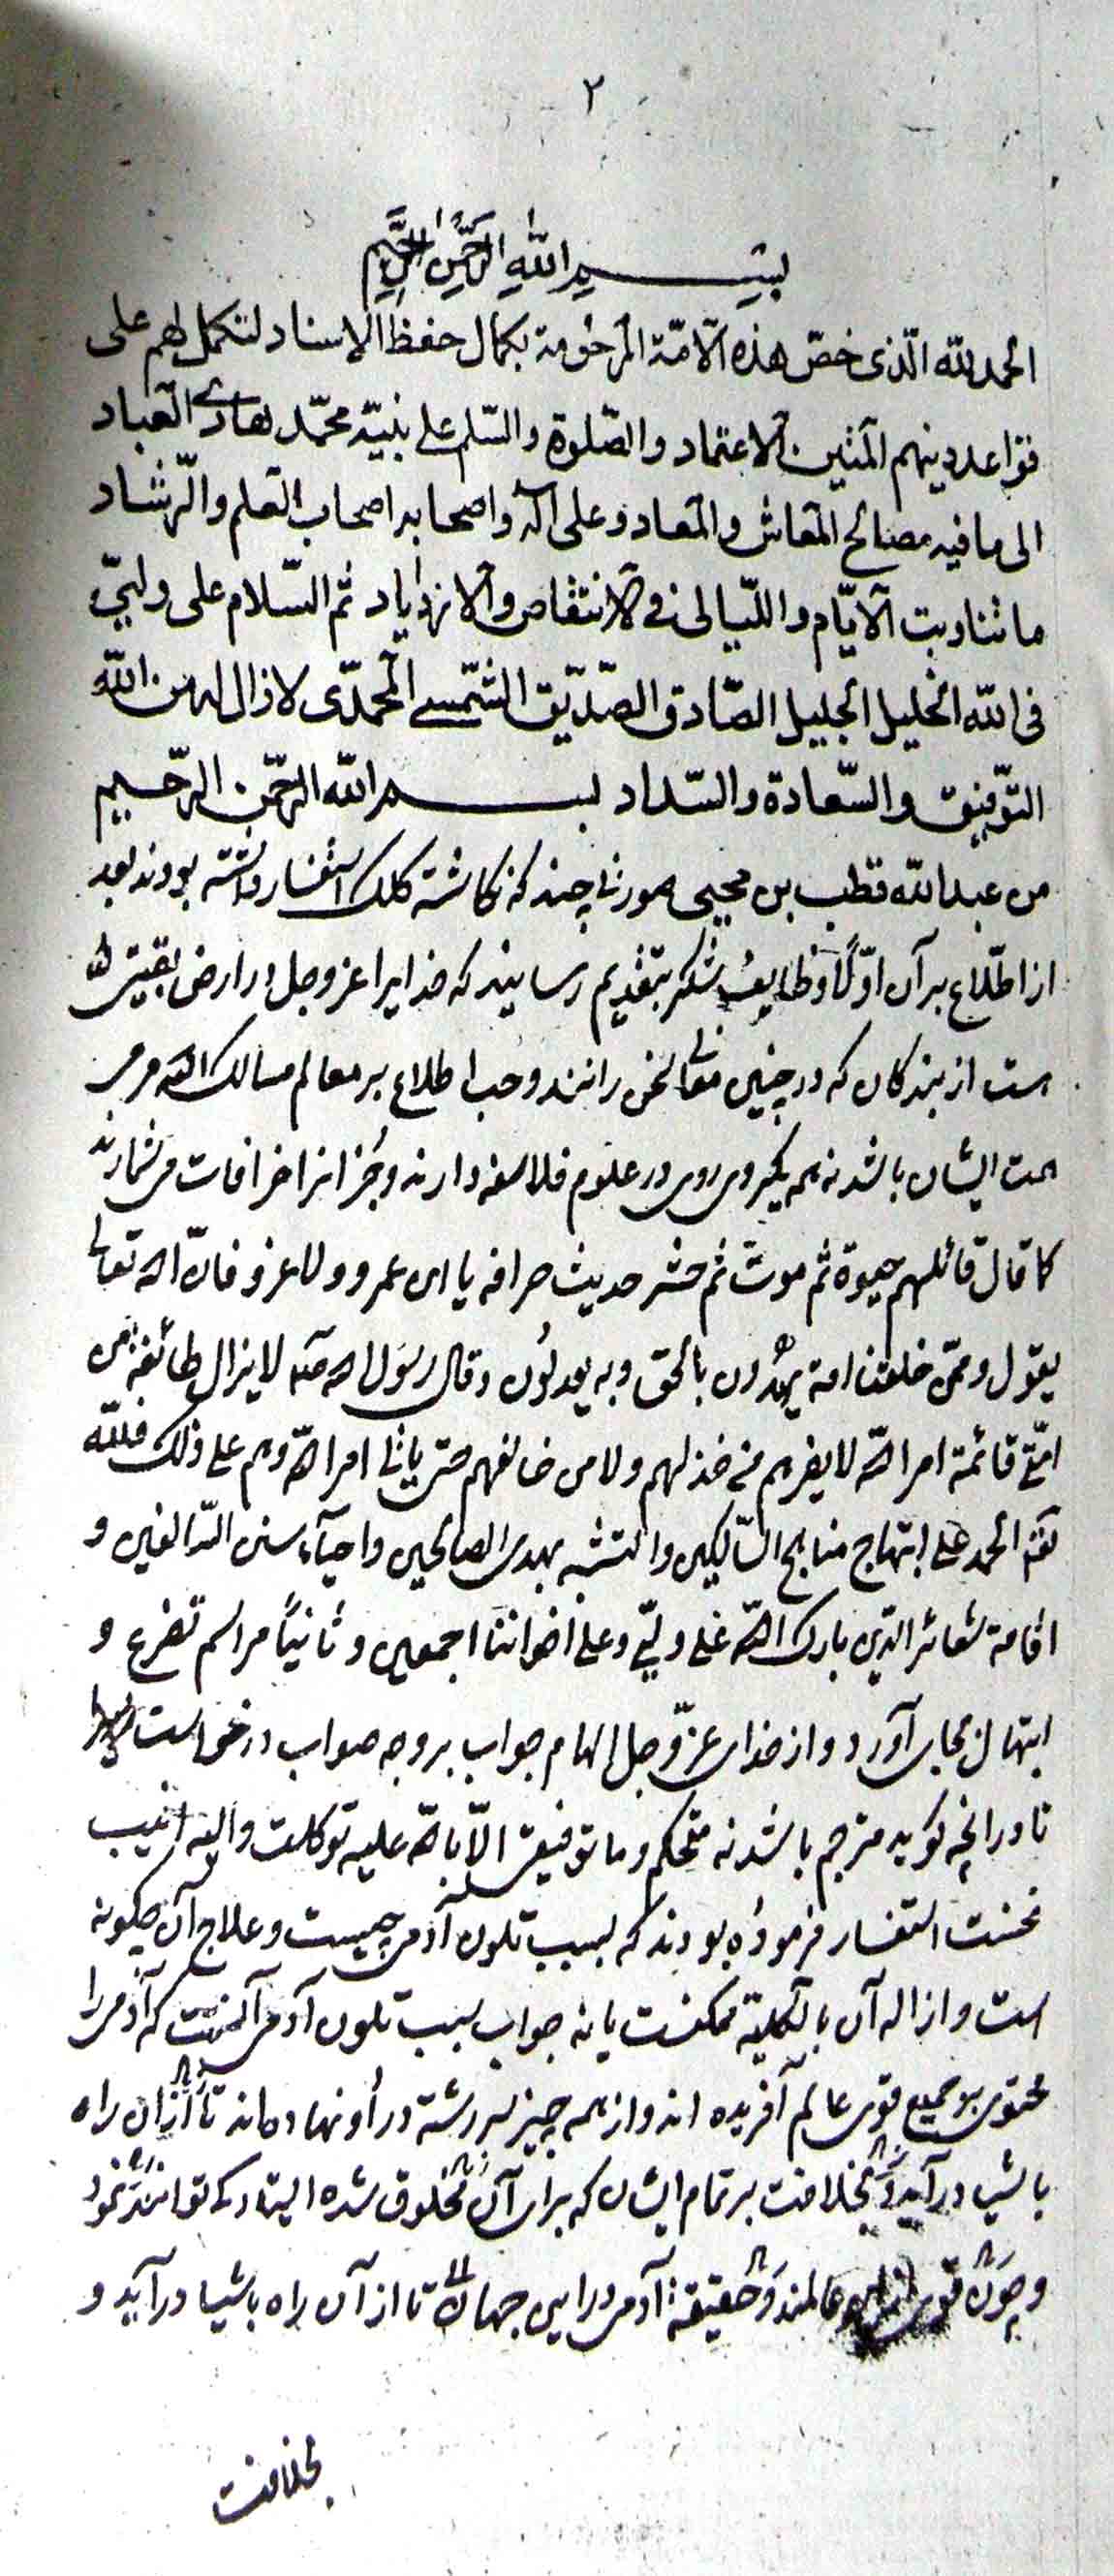 ۲
بسم الله الرحمن الرحیم
الحمد لله الّذی خصّ هذه الامّة المرحومة بکمال حفظ الاسناد لتکمل لهم علی
قواعد دینهم المتین الاعتماد والصّلوة والسّلم علی نبیّه محمّد هادی العباد
الی ما فیه مصالح المعاش والمعاد وعلی آله واصحابه اصحاب العلم والرّشاد
ما تناوبت الایّام واللیالی فی الانتقاص والازدیاد ثم السّلام علی ولیّی
فی الله الخلیل الجلیل الصّادق الصّدّیق الشّمسی المحمّدی لا زال له من الله
التّوفیق والسّعادة والسّداد بسم الله الرّحمن الرّحیم
من عبد الله قطب بن محیی صورتی چند که نکاشتهٔ کلک استفسار داشته بودند بعد
از اطّلاع بر آن اوّلاً وظایف شکر بتقدیم رسانید که خدایرا عزّ وجل در ارض بقیتی
ست از بندکان که در چنین معانی سخن رانند وحب اطلاع بر معالم مسالک الله مرمی
همت ایشان باشد نه همه یکروی روی در علوم فلاسفه دارند وجز انرا خرافات می‌شمارند
کما قال قائلهم حیوة ثم موت ثم حشر حدیث خرافه یا ام عمرو ولا غرو فانّ الله تعالی
یقول وممّن خلقنا امة یهدون بالحق وبه یعدلون وقال رسول الله صلعم لا یزال طائفة من
امّتی قائمة امر الله لا یضرهم من خذلهم ولا من خالفهم حتی یاتی امر الله وهم علی ذلک فللّه
ثم الحمد علی ابتهاج مناهج السّالکین والتشبه بهدی الصالحین واحیاء سنن الدّالفین و
اقامة شعائر الدّین بارک الله علی ولیّی وعلی اخواننا اجمعین وثانیاً مراسم تضرع و
ابتهال بجای آورد و از خدای عزّ وجل الهام جواب بر وجه صواب درخواست
تا در انچه کوید مترجم باشد نه متحکم وما توفیقی الّا بالله علیه توکلت والیه انیب
نخست استفسار فرموده بودند که سبب تلون آدمی چیست وعلاج آن چکونه
است وازاله آن بالکلیة ممکنست یا نه جواب سبب تلون آدمی آنست که آدمی را
محتوی بر جمیع قوی عالم آفریده اند و از همه چیز سر رشته در او نهاده اند تا از آن راه
باشیا درآید و بخلافت بر تمام ایشان که برای آن مخلوق شده ایستادکی تواند نمود
و چون قوی عالمند و حقیقة آدمی در این جهان تا از آن راه باشیا درآید و
بخلافت